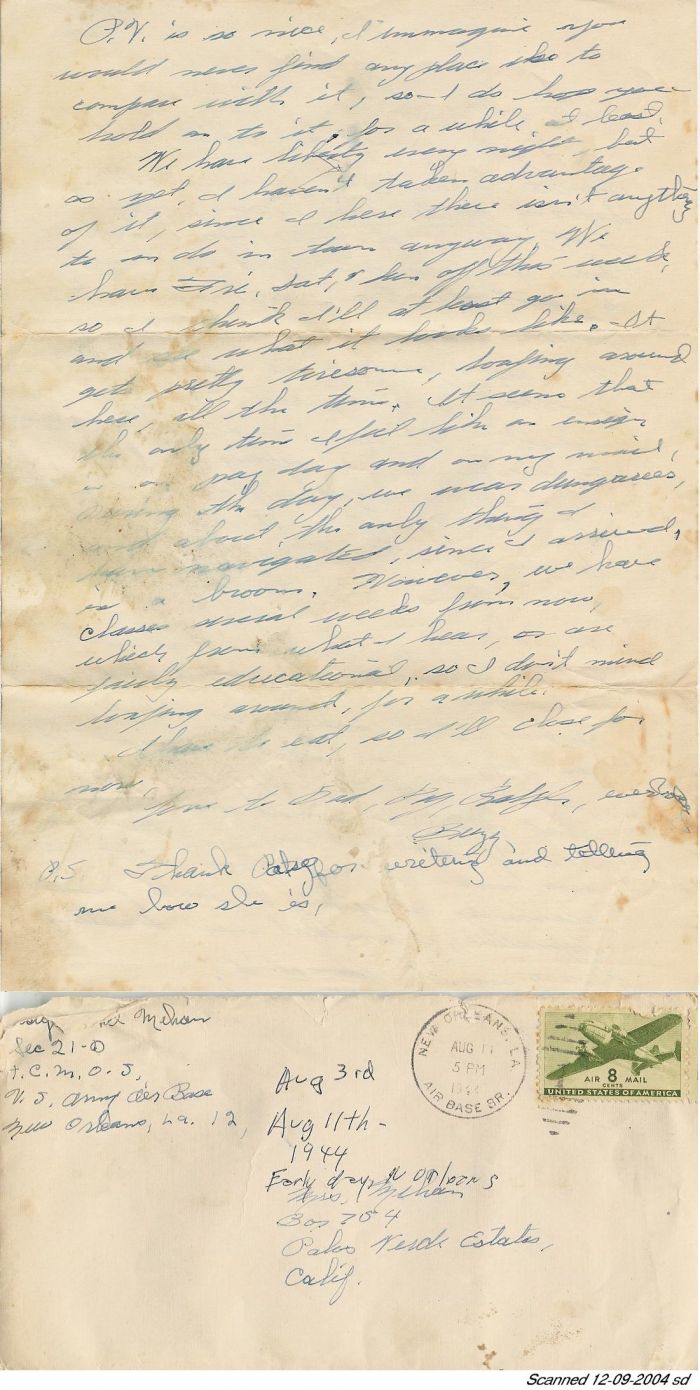 P.V. is so nice, I immagine you
would never find any place else to
compare with it, so I do hope you
hold on to it, for a while at least.
We have liberty every night, but
as yet, I haven't taken advantage
of it, since I hear there isn't anything
to do in town anyway. We
have Fri, Sat, & Sun off this week,
so I think I'll at least go in
and see what it looks like. It
gets pretty tiresome, loafing around
here, all the time. It seems that
the only time I feel like an ensign
is on pay day and on my mail,
during the day, we wear dungarees,
and about the only thing I
have navigated, since I arrived,
is a broom. However, we have
classes several weeks from now,
which from what I hear, are
fairly educational, so I don't mind
loafing around, for a while.
I have to eat, so I'll close for
now.
Love to Dad, everybody
Buzz
P.S. Thank Patsy for writing and telling
me how she is.
Mehan
Sec 21-D
U.S. Army Air Base
New Orleans, La. 12,
Aug 3rd
Aug 11th-
1944
Early days N Orleans
Mrs. Mehan
Box 754
Palos Verde Estates,
Calif.
NEW ORLEANS, LA.
AUG 11
5 PM
1944
AIR BASE BR.
AIR 8 MAIL
CENTS
UNITED STATES OF AMERICA
Scanned 12-09-2004 sd